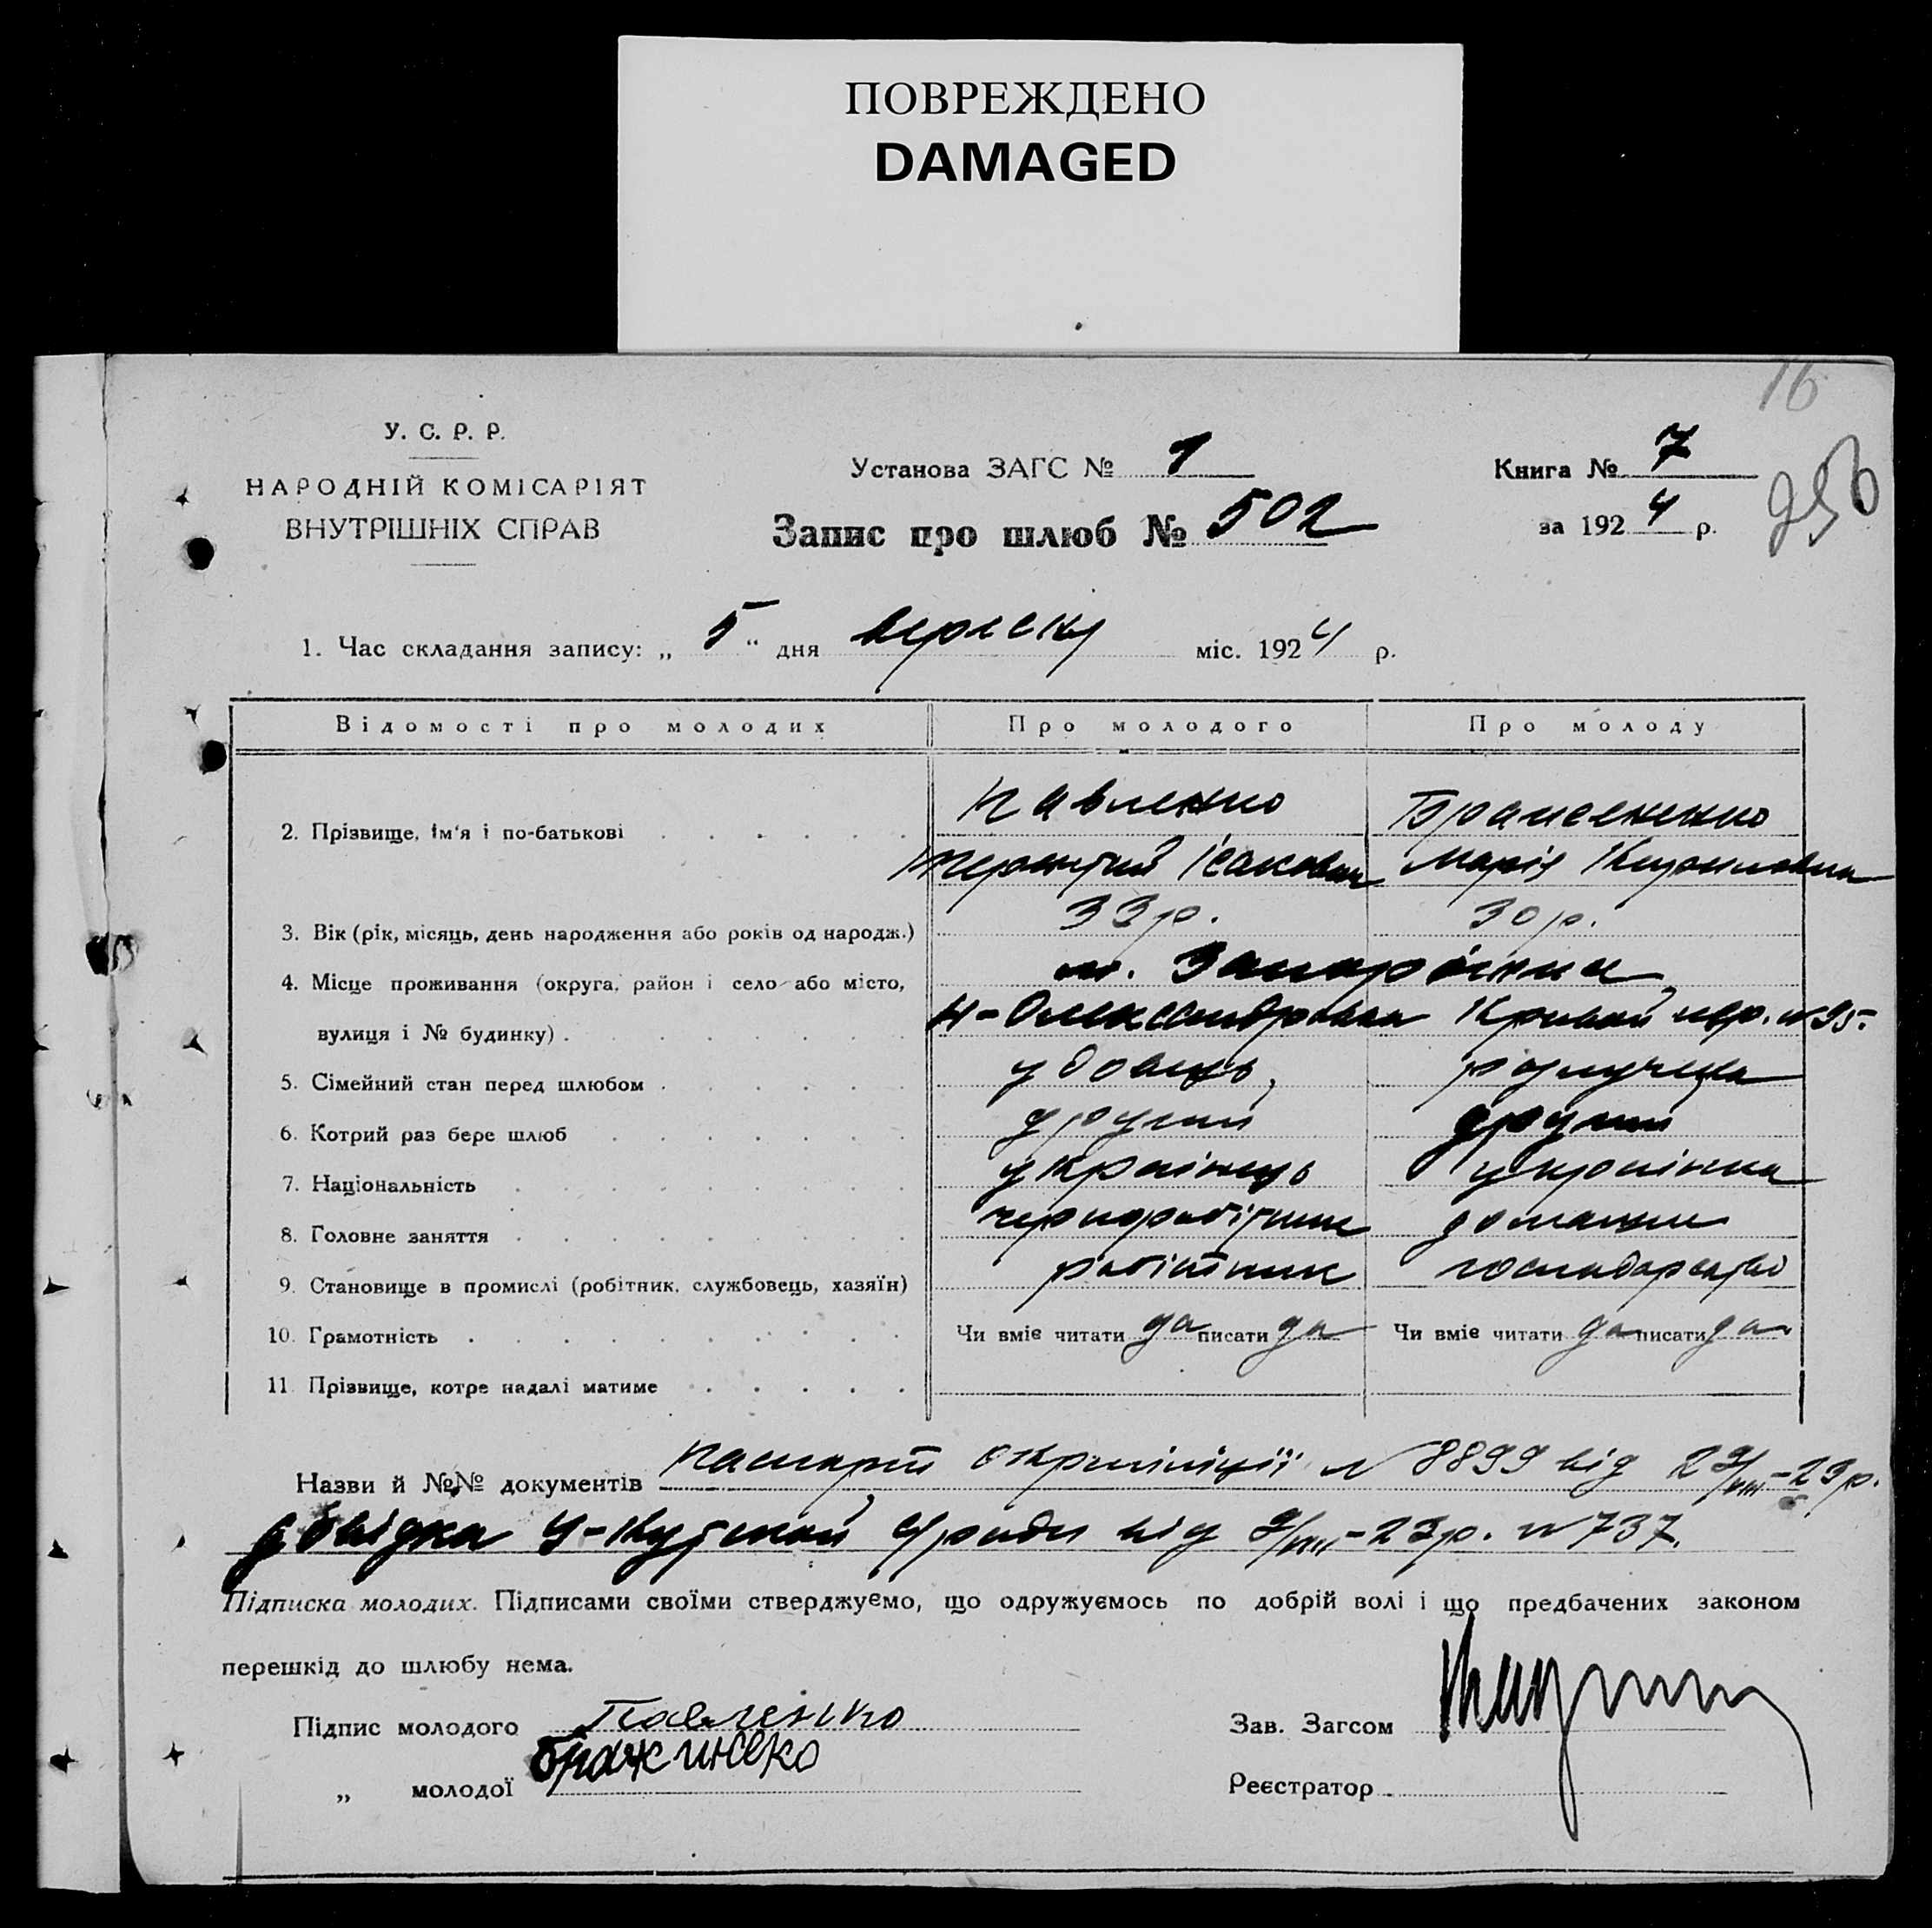 ПОВРЕЖДЕНО
DAMAGED
16
У. С. Р. Р.
НАРОДНІЙ КОМІСАРІЯТ
ВНУТРІШНІХ СПРАВ
Установа ЗАГС № 1
Запис про шлюб № 502
Книга № 7
за 1924 р.
256
1. Час складання запису: „ 5 " дня вересня міс. 1924 р.
Відомості про молодих Про молодого Про молоду
Павленко
2. Прізвище, ім'я і по-батькові
Терентий Ісакович Марія Кириловна
3. Вік (рік, місяць, день народження або років од народж.) 33 р. 30 р.
4. Місце проживання (округа, район і село або місто, м. Запоріжжя
вулиця і № будинку) Н-Олександровка Кривой пер. № 95.
5. Сімейний стан перед шлюбом удовець, розлучена
6. Котрий раз бере шлюб другий другий
7. Національність українець українка
8. Головне заняття чорноробітник домашнє
9. Становище в промислі (робітник, службовець, хазяїн) робітник господарство
10. Грамотність Чи вміє читати да писати да Чи вміє читати да писати да
11. Прізвище, котре надалі матиме
Назви й №№ документів паспорт окрміліції № 8899 від 29/VIII-23 р.
довідка сількради від 9/VIII-23 р. № 737.
Підписка молодих. Підписами своїми стверджуємо, що одружуємось по добрій волі і що предбачених законом
перешкід до шлюбу нема.
Підпис молодого Павленко
Зав. Загсом
„ молодої Бражинеко
Реєстратор